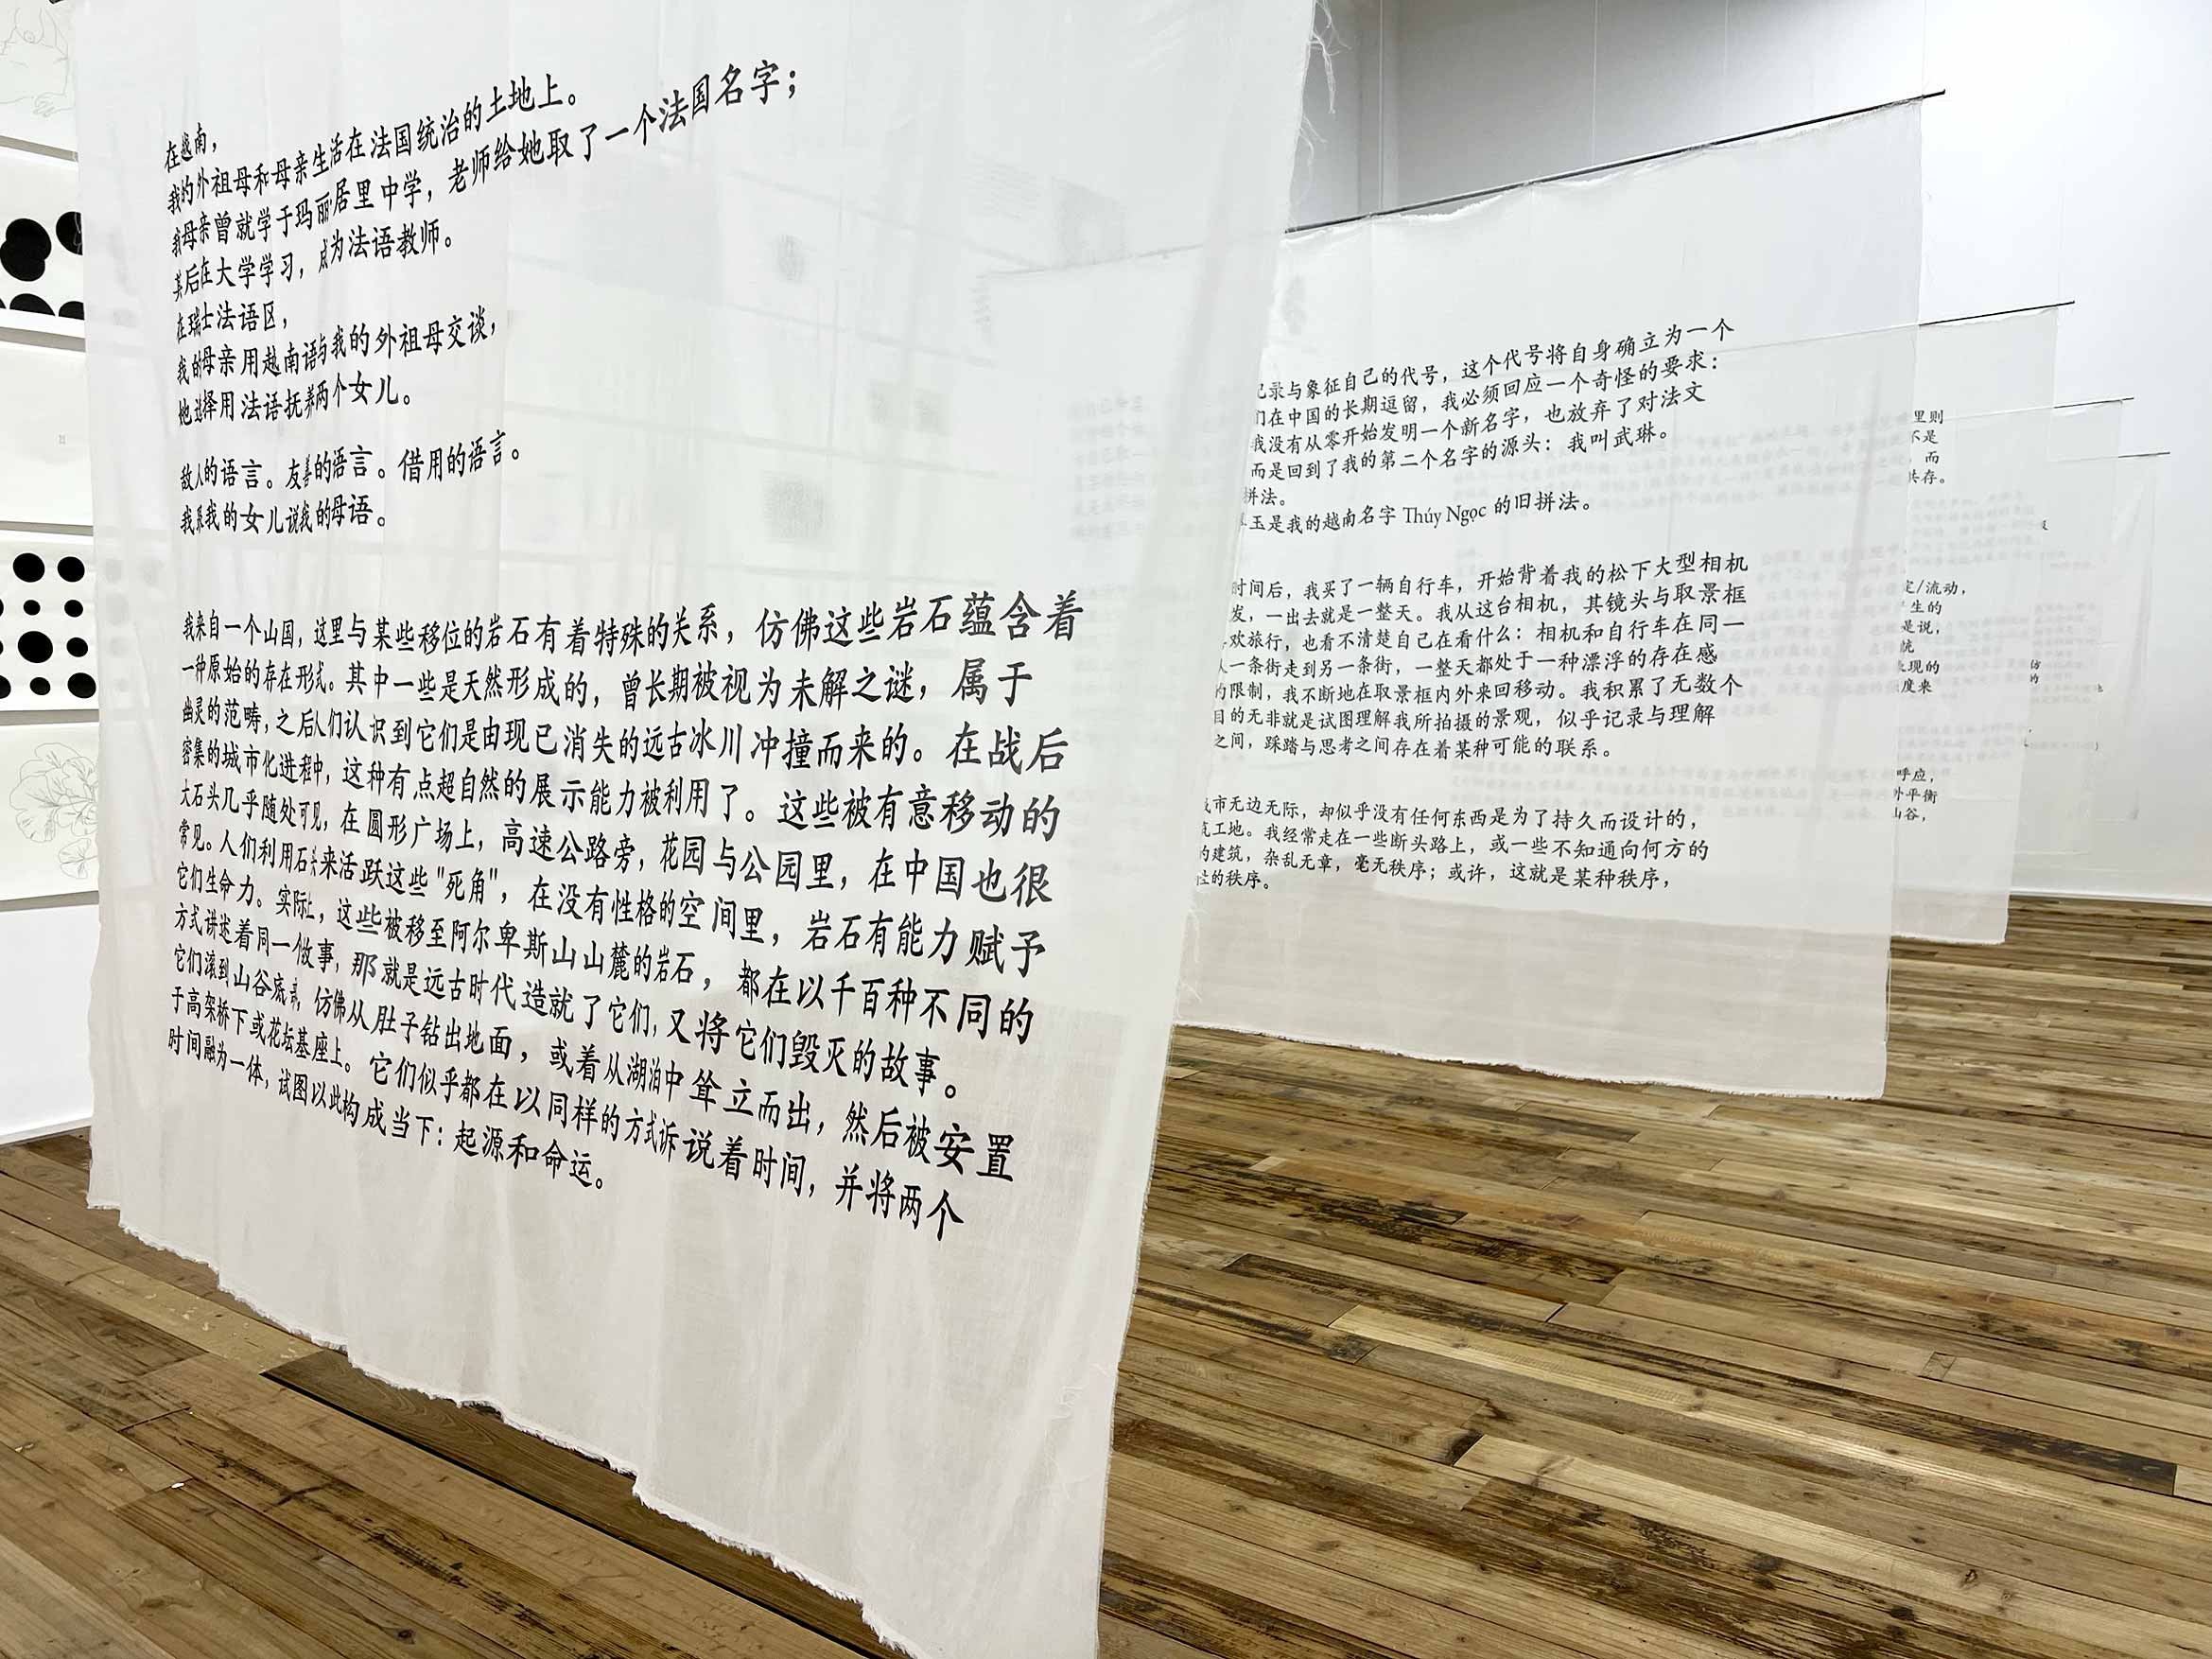 在越南，
我的外祖母和母亲生活在法国统治的土地上。
我母亲曾就学于玛丽居里中学，老师给她取了一个法国名字；
其后在大学学习，成为法语教师。
在瑞士法语区，
我的母亲用越南语与我的外祖母交谈，
她选择用法语抚养两个女儿。
敌人的语言。友善的语言。借用的语言。
我系我的女儿说我的母语。
我来自一个山国，这里与某些移位的岩石有着特殊的关系，仿佛这些岩石蕴含着
一种原始的存在形式。其中一些是天然形成的，曾长期被视为未解之谜，属于
幽灵的范畴，之后人们认识到它们是由现已消失的远古冰川冲撞而来的。在战后
密集的城市化进程中，这种有点超自然的展示能力被利用了。这些被有意移动的
大石头几乎随处可见，在圆形广场上，高速公路旁，花园与公园里，在中国也很
常见。人们利用石头来活跃这些"死角"，在没有性格的空间里，岩石有能力赋予
它们生命力。实际上，这些被移至阿尔卑斯山山麓的岩石，都在以千百种不同的
方式讲述着同一个故事，那就是远古时代造就了它们，又将它们毁灭的故事。
它们滚到山谷底，仿佛从肚子钻出地面，或着从湖泊中耸立而出，然后被安置
于高架桥下或花坛基座上。它们似乎都在以同样的方式诉说着时间，并将两个
时间融为一体，试图以此构成当下：起源和命运。
记录与象征自己的代号，这个代号将自身确立为一个
们在中国的长期逗留，我必须回应一个奇怪的要求：
我没有从零开始发明一个新名字，也放弃了对法文
而是回到了我的第二个名字的源头：我叫武琳。
拼法。
玉是我的越南名字 Thúy Ngọc 的旧拼法。
时间后，我买了一辆自行车，开始背着我的松下大型相机
发，一出去就是一整天。我从这台相机，其镜头与取景框
欢旅行，也看不清楚自己在看什么：相机和自行车在同一
人一条街走到另一条街，一整天都处于一种漂浮的存在感
的限制，我不断地在取景框内外来回移动。我积累了无数个
目的无非就是试图理解我所拍摄的景观，似乎记录与理解
之间，踩踏与思考之间存在着某种可能的联系。
城市无边无际，却似乎没有任何东西是为了持久而设计的，
筑工地。我经常走在一些断头路上，或一些不知通向何方的
的建筑，杂乱无章，毫无秩序；或许，这就是某种秩序，
的秩序。
里则
不是
，而
共存。
定/流动，
生的
是说，
现的
度来
呼应，
外平衡
山谷，